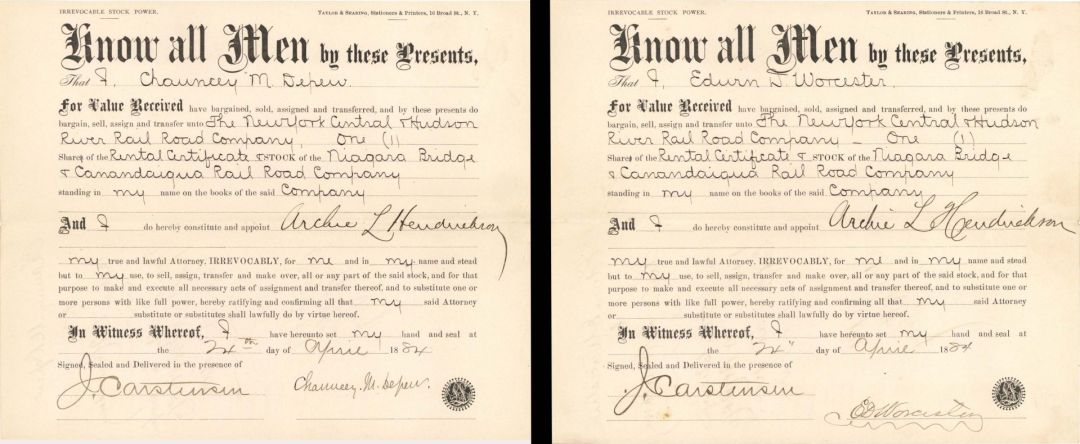 IRREVOCABLE STOCK POWER.
TAYLOR & SEARING, Stationers & Printers, 16 Broad St., N. Y.
Know all Men by these Presents,
That I, Chauncey M. Depew.
For Value Received have bargained, sold, assigned and transferred, and by these presents do
bargain, sell, assign and transfer unto The New York Central & Hudson
River Rail Road Company, One (1)
Shares of the Rental Certificate & STOCK of the Niagara Bridge
& Canandaigua Rail Road Company
standing in my name on the books of the said Company
And I do hereby constitute and appoint Archie L Hendrickson
my true and lawful Attorney, IRREVOCABLY, for me and in my name and stead
but to my use, to sell, assign, transfer and make over, all or any part of the said stock, and for that
purpose to make and execute all necessary acts of assignment and transfer thereof, and to substitute one or
more persons with like full power, hereby ratifying and confirming all that my said Attorney
or substitute or substitutes shall lawfully do by virtue hereof.
In Witness Whereof, I have hereunto set my hand and seal at
the 24th day of April 1884
Signed, Sealed and Delivered in the presence of
J. Carstensen Chauncey. M. Depew.
IRREVOCABLE STOCK POWER.
TAYLOR & SEARING, Stationers & Printers, 16 Broad St., N. Y.
Know all Men by these Presents,
That I, Edwin D. Worcester.
For Value Received have bargained, sold, assigned and transferred, and by these presents do
bargain, sell, assign and transfer unto The New York Central & Hudson
River Rail Road Company - One (1)
Shares of the Rental Certificate & STOCK of the Niagara Bridge
& Canandaigua Rail Road Company
standing in my name on the books of the said Company
And I do hereby constitute and appoint Archie L Hendrickson
my true and lawful Attorney, IRREVOCABLY, for me and in my name and stead
but to my use, to sell, assign, transfer and make over, all or any part of the said stock, and for that
purpose to make and execute all necessary acts of assignment and transfer thereof, and to substitute one or
more persons with like full power, hereby ratifying and confirming all that my said Attorney
or substitute or substitutes shall lawfully do by virtue hereof.
In Witness Whereof, I have hereunto set my hand and seal at
the 24" day of April 1884
Signed, Sealed and Delivered in the presence of
J. Carstensen
ED Worcester